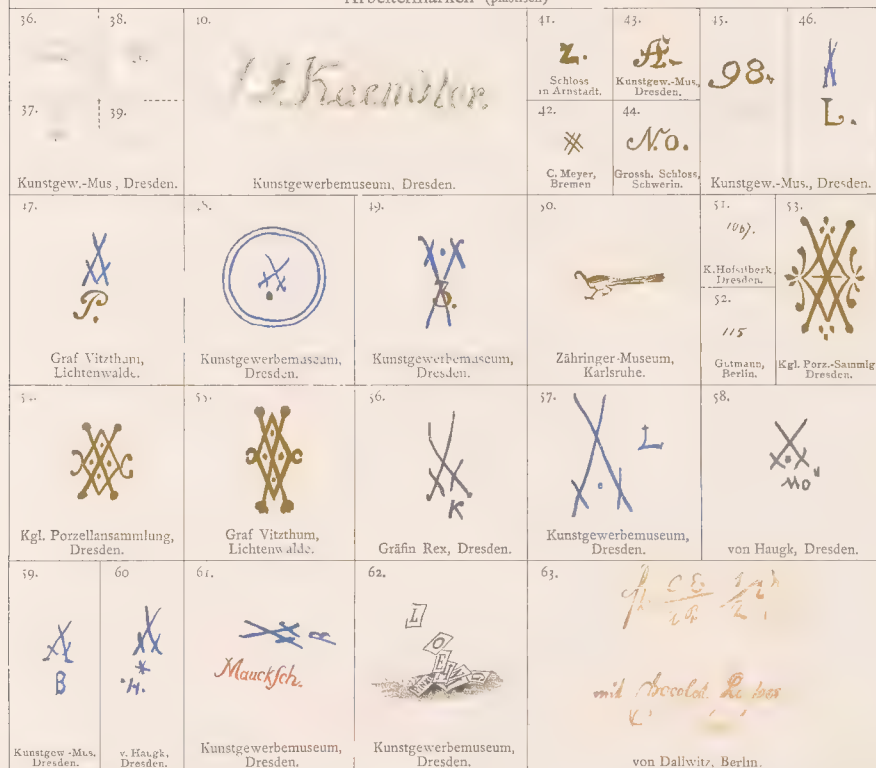 Arbeitermarken (plastisch)
36.
38.
37.
39.
Kunstgew.-Mus., Dresden.
Kaendler.
Kunstgewerbemuseum, Dresden.
41.
Z.
Schloss
in Arnstadt.
43.
Æ.-
Kunstgew.-Mus.,
Dresden.
42.
C. Meyer,
Bremen
44.
N.o.
Grossh. Schloss,
Schwerin.
45.
98.
46.
L.
Kunstgew.-Mus., Dresden.
47.
P.
Graf Vitzthum,
Lichtenwalde.
48.
Kunstgewerbemuseum,
Dresden.
49.
Kunstgewerbemuseum,
Dresden.
50.
Zähringer-Museum,
Karlsruhe.
51.
Dresden.
52.
115
Gutmann,
Berlin.
53.
Kgl. Porz.-Sammlg
Dresden.
54.
Kgl. Porzellansammlung,
Dresden.
55.
Graf Vitzthum,
Lichtenwalde.
56.
K
Gräfin Rex, Dresden.
57.
L
Kunstgewerbemuseum,
Dresden.
58.
MO
von Haugk, Dresden.
59.
B
Kunstgew.-Mus.
Dresden.
60
H.
v. Haugk,
Dresden.
61.
B
Mauckſch.
Kunstgewerbemuseum,
Dresden.
62.
L
O
Kunstgewerbemuseum,
Dresden.
63.
mit
von Dallwitz, Berlin.